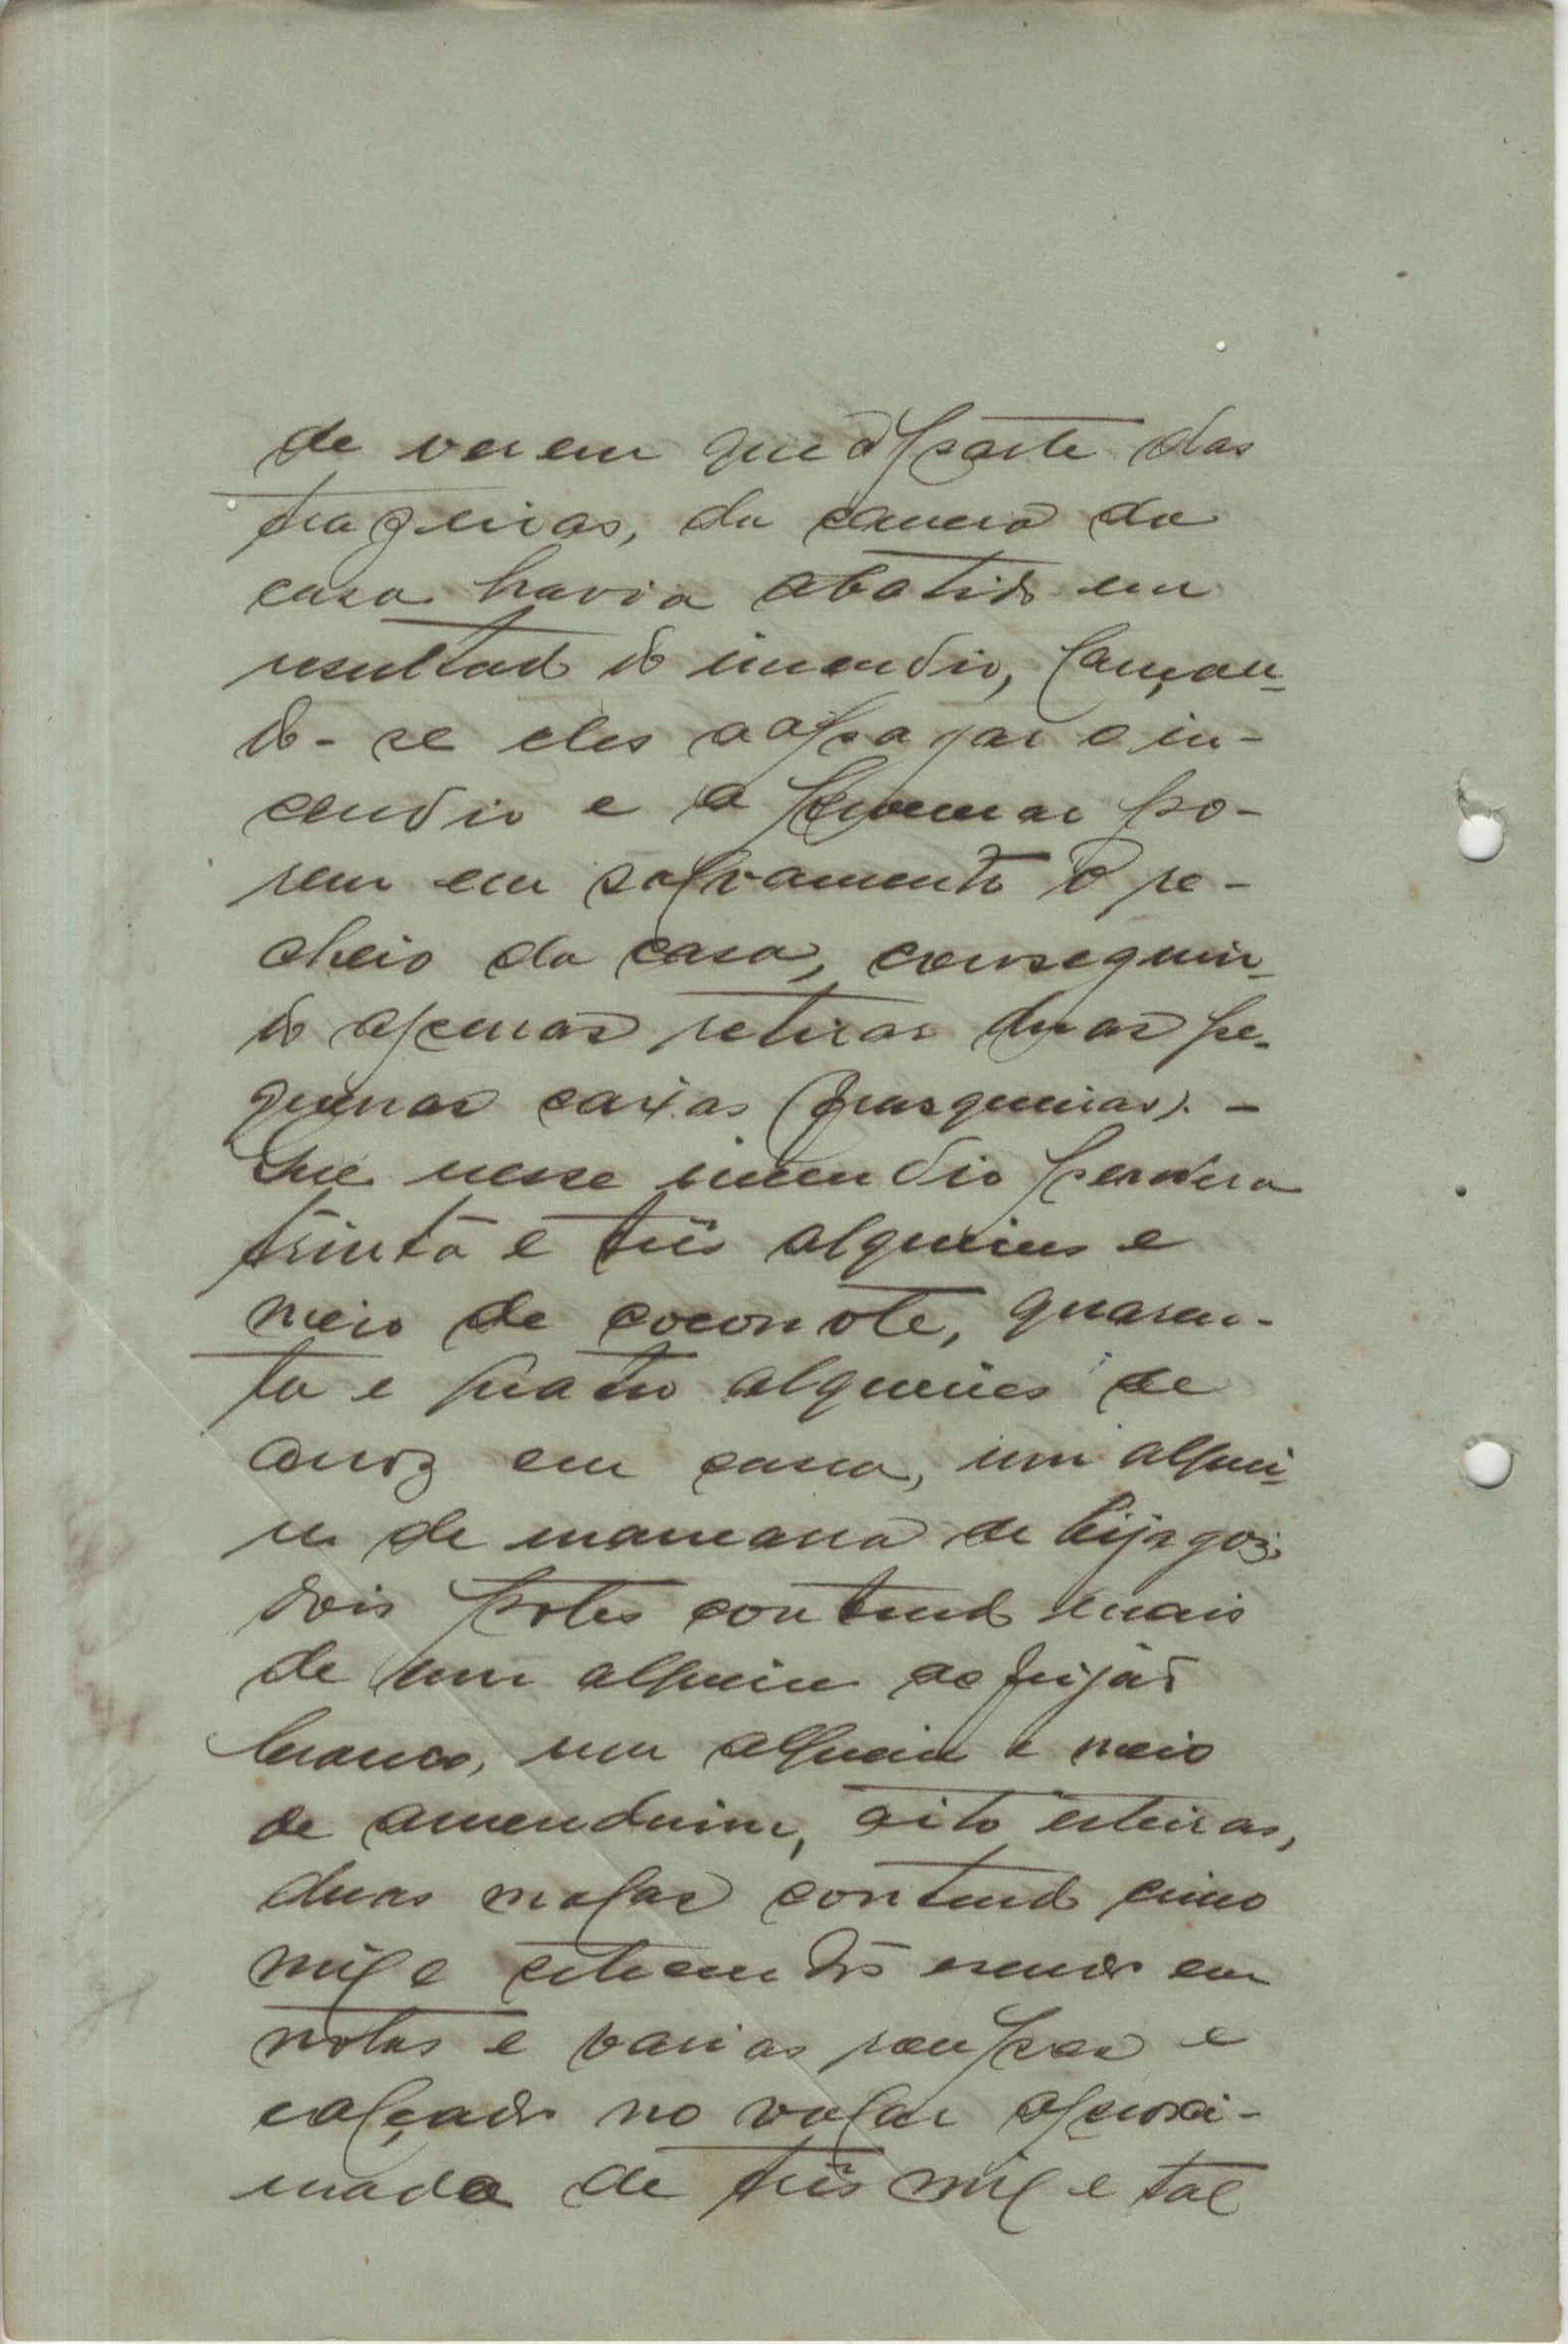 de verem que a parte das
trazeiras, da camera da
casa havia abatido em
resultado do incendio, lançan-
do-se eles a apagar o in-
cendio e a procurar po-
rem em salvamento o re-
cheio da casa, conseguin-
do apenas retirar duas pe-
quenas caixas (frasqueiras). -
Que nesse incendio perdera
trinta e três alqueires e
meio de coconote, quaren-
ta e quatro alqueires de
arroz em casca, um alquei-
re de mancarra de bijagoz,
dois potes contendo mais
de um alqueire de feijão
branco, um alqueire e meio
de amenduim, oito esteiras,
duas malas contendo cinco
mil e escudos em
notas e varias roupas e
calçado no valor aproxi-
mado de três mil e tal